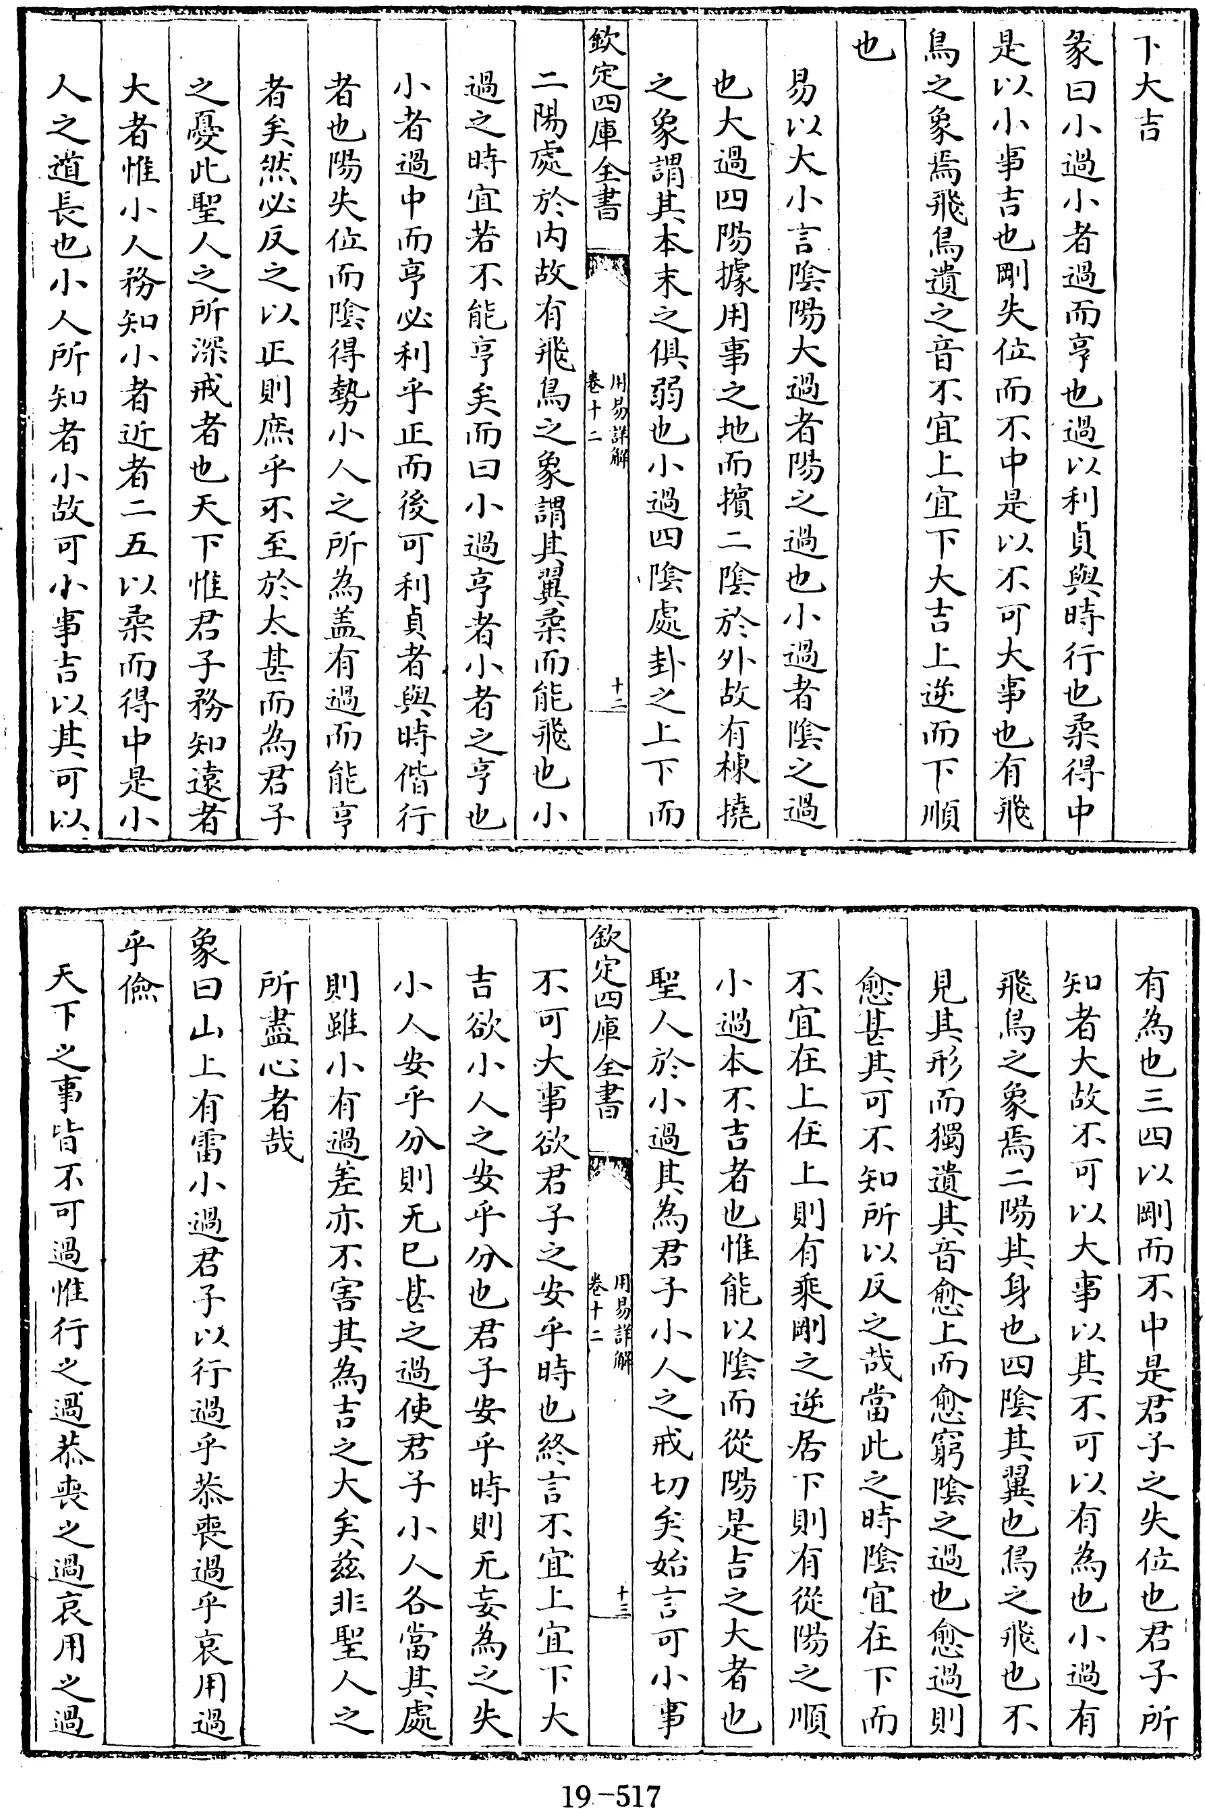 下大吉
彖曰小過小者過而亨也過以利貞與時行也柔得中
是以小事吉也剛失位而不中是以不可大事也有飛
鳥之象焉飛鳥遺之音不宜上宜下大吉上逆而下順
也
易以大小言陰陽大過者陽之過也小過者陰之過
也大過四陽據用事之地而擯二陰於外故有棟撓
之象謂其本末之俱弱也小過四陰處卦之上下而
欽定四庫全書
用易詳解
卷十二
十二
二陽處於内故有飛鳥之象謂其翼柔而能飛也小
過之時宜若不能亨矣而曰小過亨者小者之亨也
小者過中而亨必利乎正而後可利貞者與時偕行
者也陽失位而陰得勢小人之所為盖有過而能亨
者矣然必反之以正則庶乎不至於太甚而為君子
之憂此聖人之所深戒者也天下惟君子務知遠者
大者惟小人務知小者近者二五以柔而得中是小
人之道長也小人所知者小故可小事吉以其可以
有為也三四以剛而不中是君子之失位也君子所
知者大故不可以大事以其不可以有為也小過有
飛鳥之象焉二陽其身也四陰其翼也鳥之飛也不
見其形而獨遺其音愈上而愈窮陰之過也愈過則
愈甚其可不知所以反之哉當此之時陰宜在下而
不宜在上在上則有乘剛之逆居下則有從陽之順
小過本不吉者也惟能以陰而從陽是吉之大者也
聖人於小過其為君子小人之戒切矣始言可小事
欽定四庫全書
用易詳解
卷十二
十三
不可大事欲君子之安乎時也終言不宜上宜下大
吉欲小人之安乎分也君子安乎時則无妄為之失
小人安乎分則无已甚之過使君子小人各當其處
則雖小有過差亦不害其為吉之大矣兹非聖人之
所盡心者哉
象曰山上有雷小過君子以行過乎恭喪過乎哀用過
乎儉
天下之事皆不可過惟行之過恭喪之過哀用之過
19-517